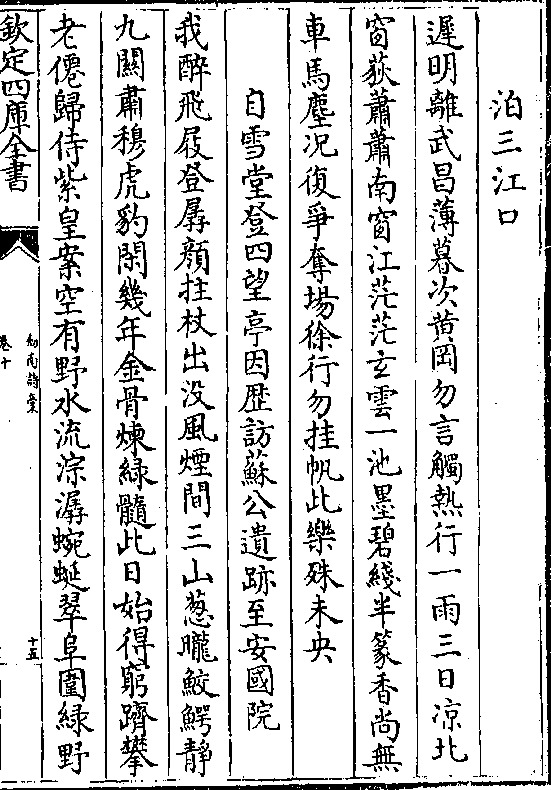 泊三江口
遲明離武昌薄暮次黄岡勿言觸熱行一雨三日凉北
窗荻蕭蕭南窗江茫茫玄雲一池墨碧綫半篆香尚無
車馬塵况復爭奪場徐行勿挂帆此樂殊未央
自雪堂登四望亭因歴訪蘇公遺跡至安國院
我醉飛屐登孱顔拄杖出没風煙間三山葱曨鮫鰐静
九關肅穆虎豹閑幾年金骨煉緑髓此日始得窮躋攀
老僊歸侍紫皇案空有野水流淙潺蜿蜒翠阜圍緑野
欽定四庫全書
劍南詩藁
卷十
十五